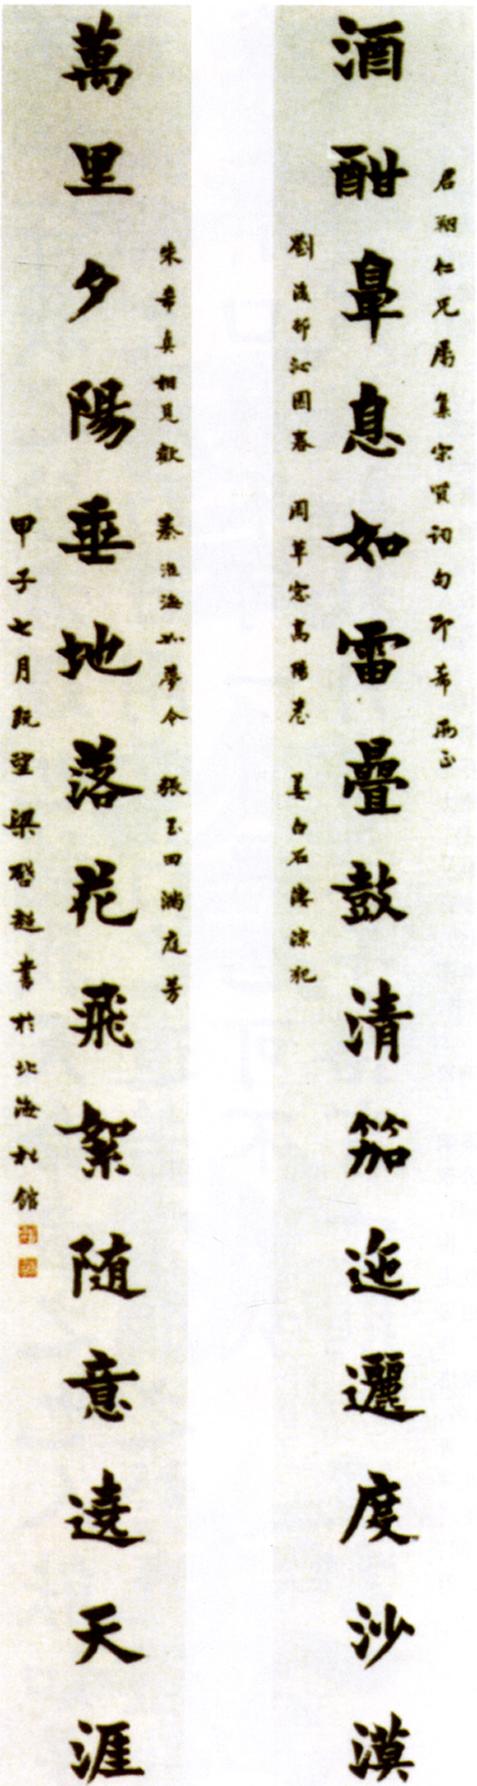 君翔仁兄屬集宋賢詞句即希兩正
酒酣鼻息如雷疊鼓清笳迤邐度沙漠
劉後邨沁園春 周草窓高陽臺 姜白石淒涼犯
朱希真相見歡 秦淮海如夢令 張玉田滿庭芳
萬里夕陽垂地落花飛絮隨意遶天涯
甲子七月既望梁啓超書於北海松館